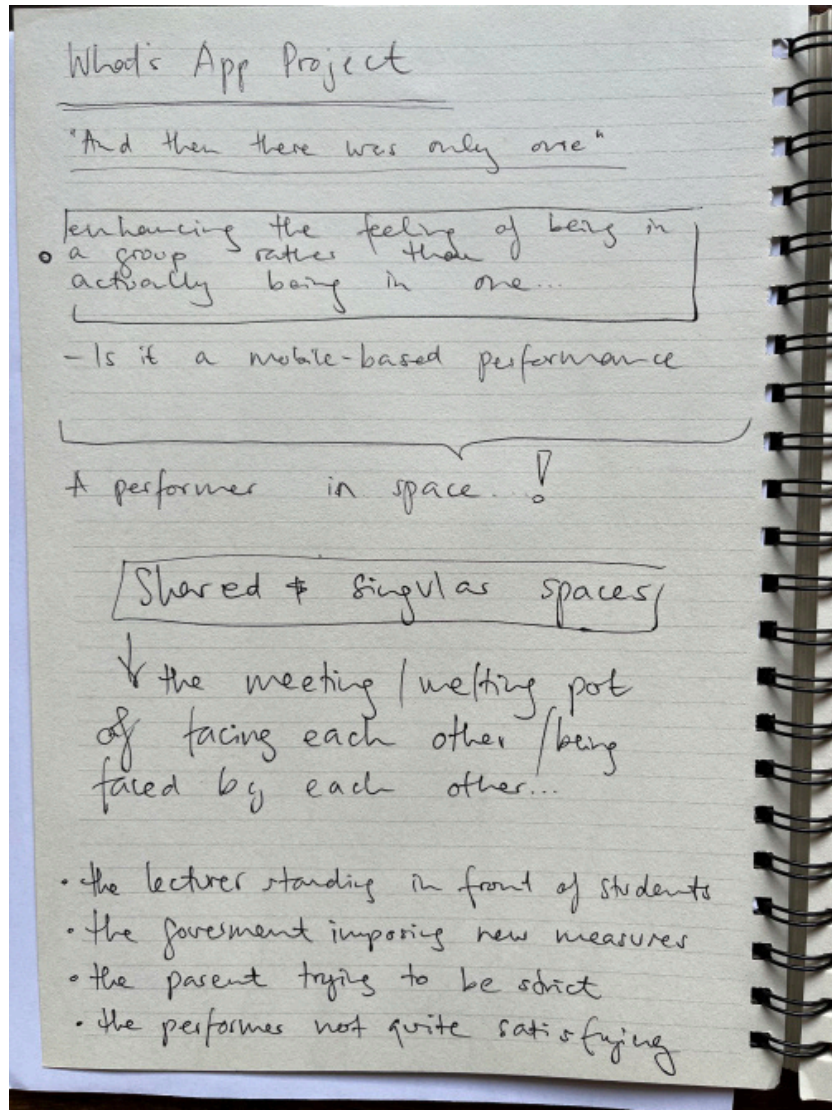 What's App Project
"And then there was only one"
enhancing the feeling of being in
a group rather than
actually being in one...
- Is it a mobile-based performance
A performer in space...!
Shared + singular spaces
↓ the meeting / melting pot
of facing each other / being
faced by each other...
• the lecturer standing in front of students
• the government imposing new measures
• the parent trying to be strict
• the performer not quite satisfying